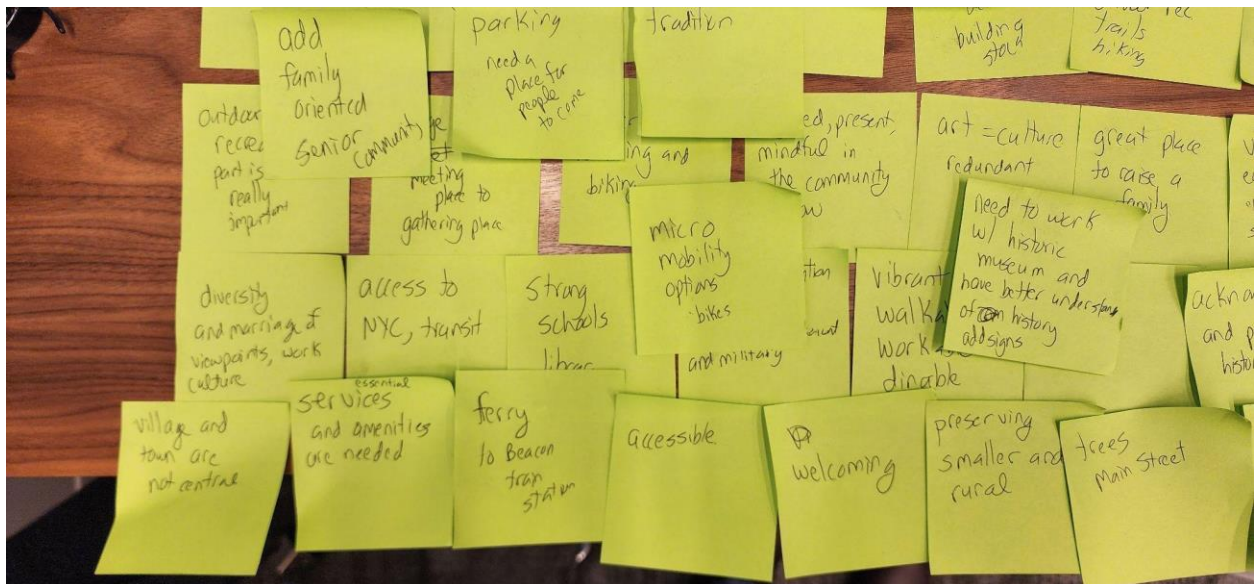 add
family
oriented
senior
community
parking
need a
place for
people
to come
tradition
building
stock
trails
hiking
outdoor
recrea
part is
really
important
meeting
place to
gathering place
ing and
biking
ed, present,
mindful in
the community
ow
art = culture
redundant
great place
to raise a
family
micro
mobility
options
bikes
need to work
w/ historic
museum and
have better understand
of history
add signs
diversity
and marriage of
viewpoints, work
culture
access to
NYC, transit
strong
schools
librar
and military
vibrant
walka
worka
dinable
ackno
and p
histo
village and
town are
not central
essential
services
and amenities
are needed
ferry
to Beacon
train
station
accessible
welcoming
preserving
smaller and
rural
trees
Main Street